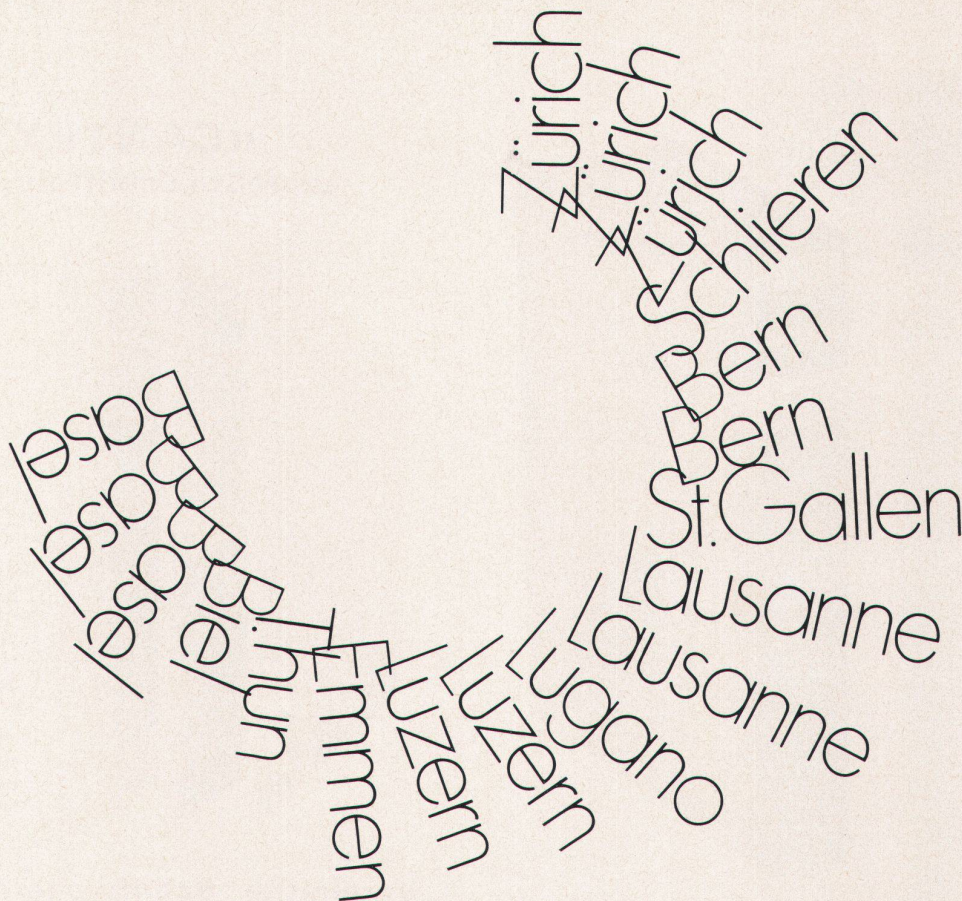 Zürich
Zürich
Zürich
Schlieren
Bern
Bern
St. Gallen
Lausanne
Lausanne
Lugano
Luzern
Luzern
Emmen
Thun
Biel
Basel
Basel
Basel